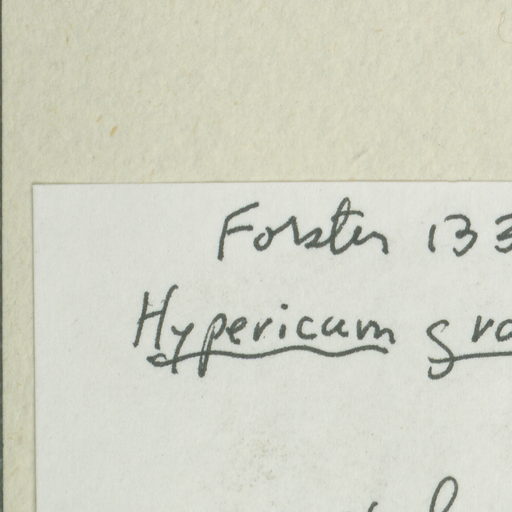 Forster 133
Hypericum gra